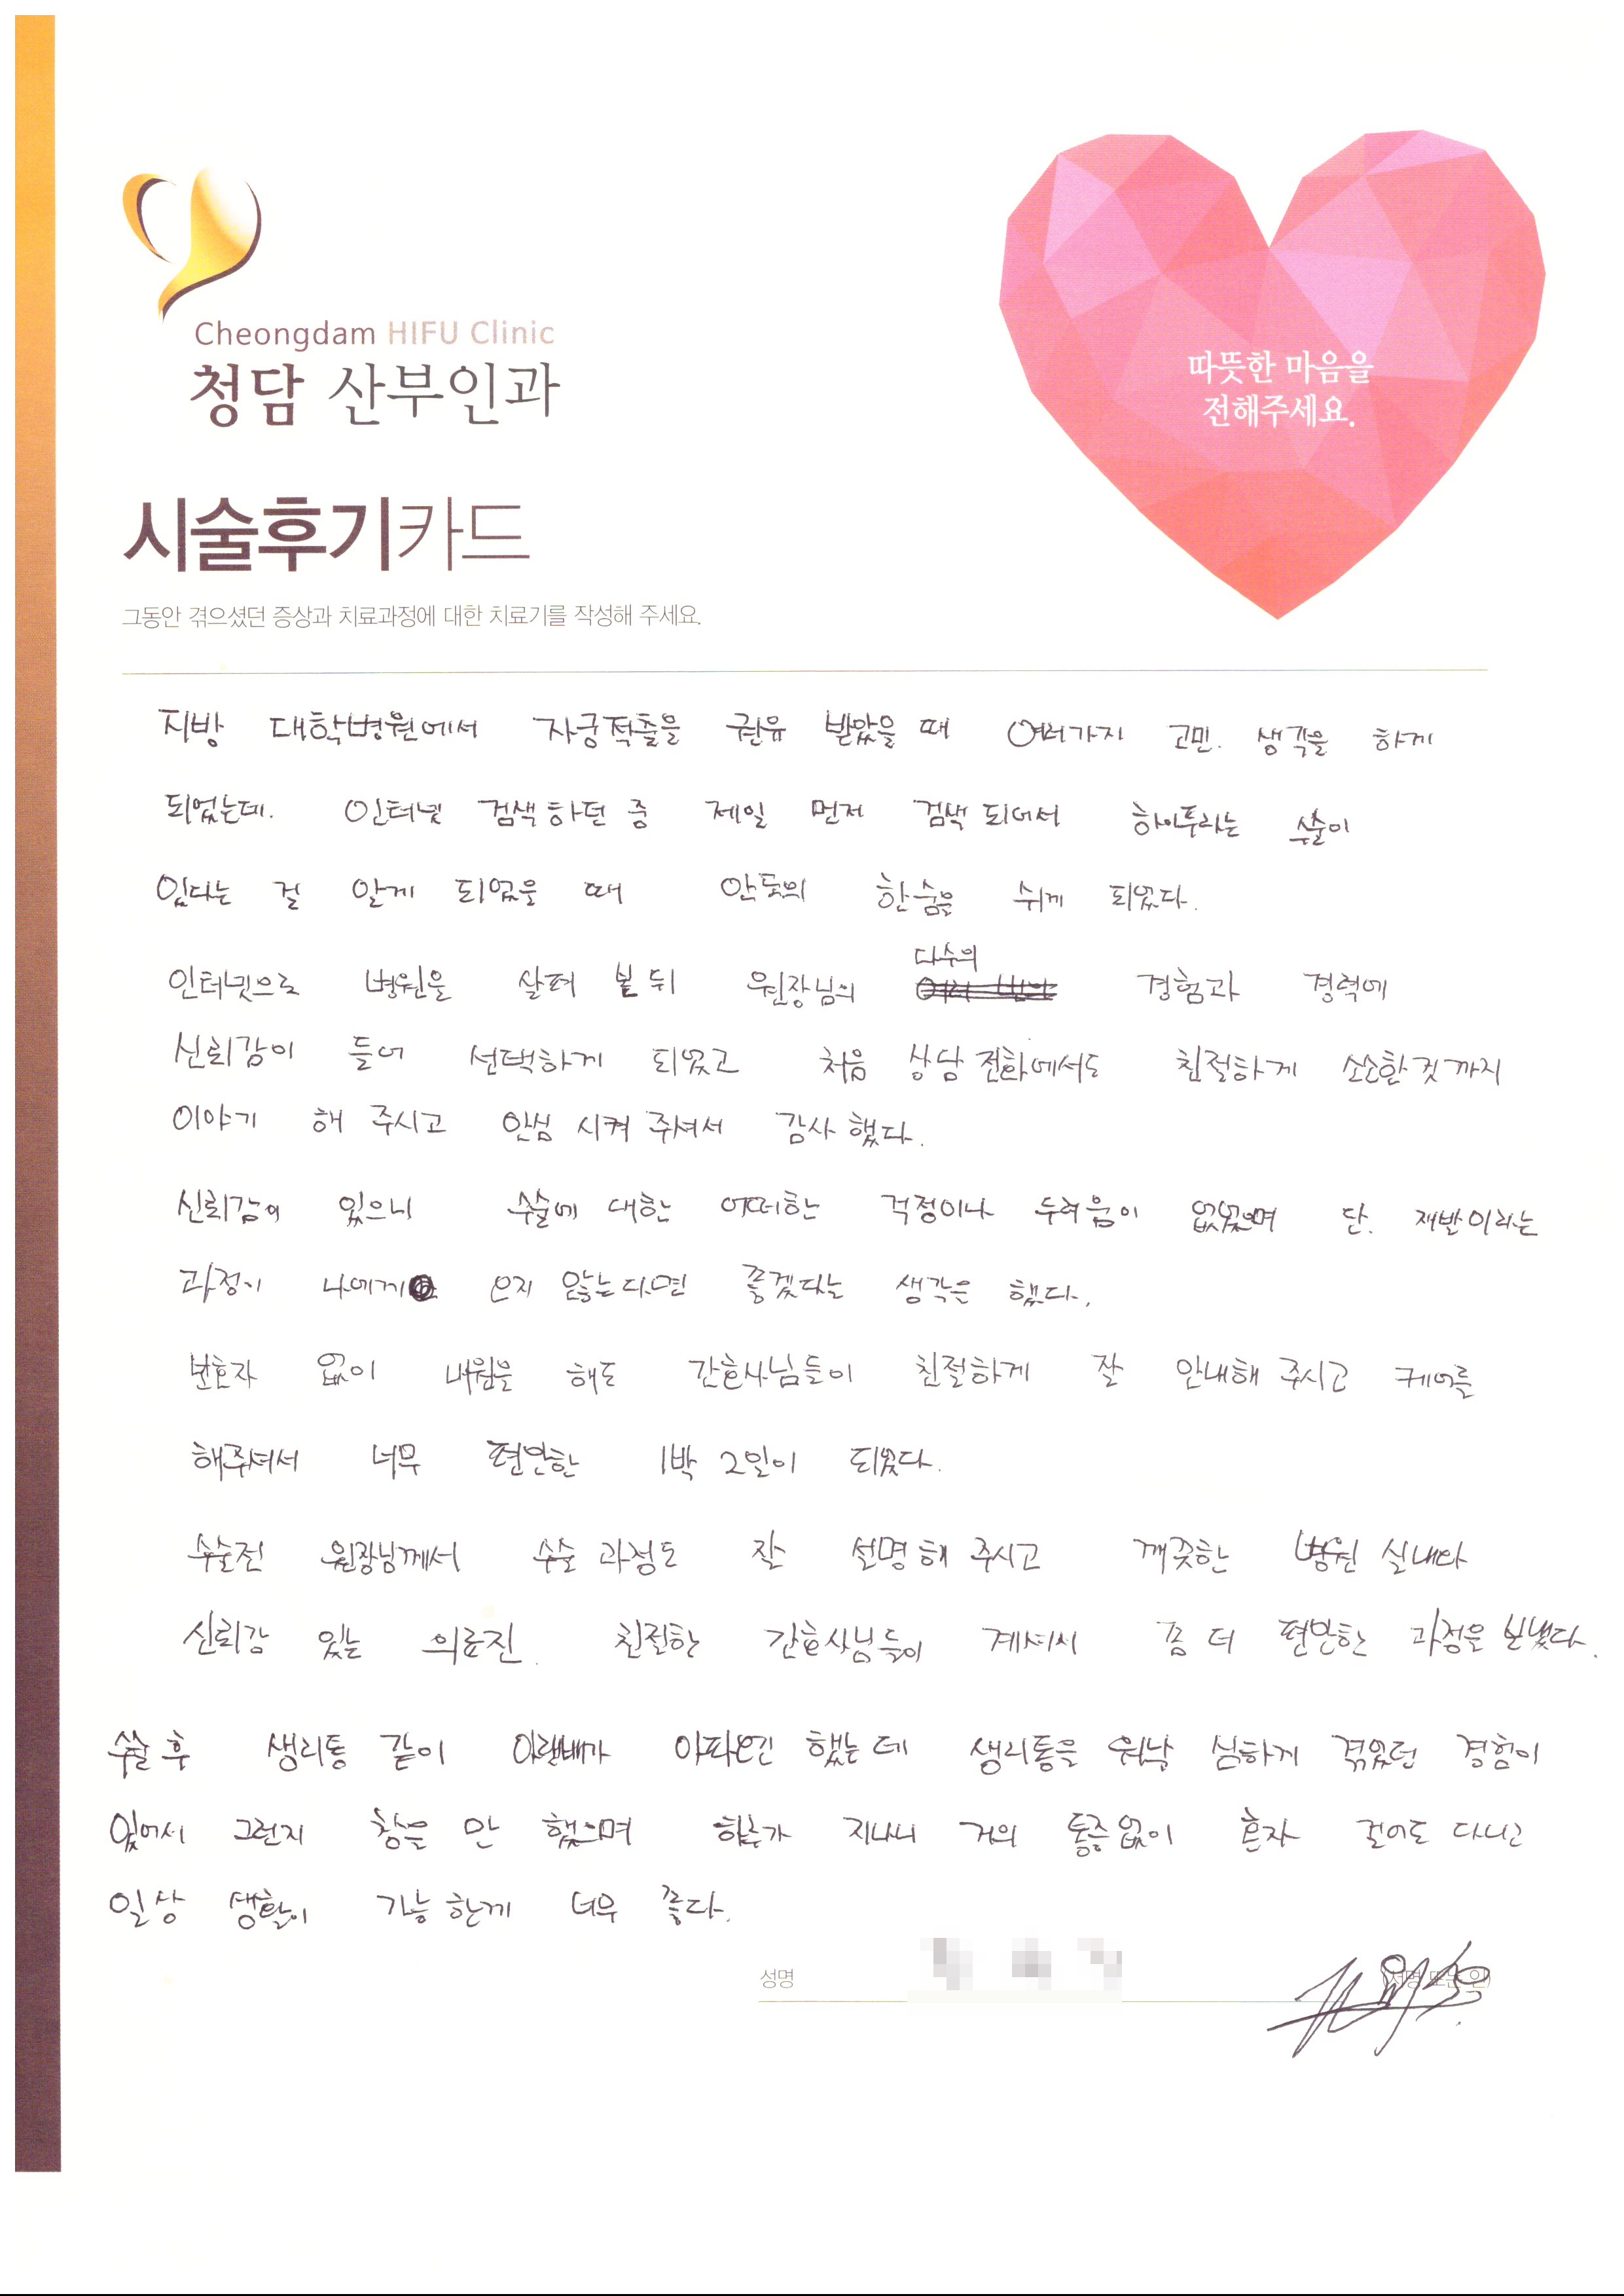 Cheongdam HIFU Clinic
청담 산부인과
따뜻한 마음을
전해주세요.
시술후기카드
그동안 겪으셨던 증상과 치료과정에 대한 치료기를 작성해 주세요.
지방 대학병원에서 자궁적출을 권유 받았을 때 여러가지 고민. 생각을 하게
되었는데. 인터넷 검색하던 중 제일 먼저 검색 되어서 하이푸라는 수술이
있다는 걸 알게 되었을 때 안도의 한숨을 쉬게 되었다.
인터넷으로 병원을 살펴 본 뒤 원장님의 다수의 경험과 경력에
신뢰감이 들어 선택하게 되었고 처음 상담 전화에서도 친절하게 소소한것 까지
이야기 해 주시고 안심 시켜 주셔서 감사 했다.
신뢰감이 있으니 수술에 대한 어떠한 걱정이나 두려움이 없었으며 단. 재발이라는
과정이 나에게 오지 않는다면 좋겠다는 생각은 했다.
보호자 없이 내원을 해도 간호사님들이 친절하게 잘 안내해 주시고 케어를
해주셔서 너무 편안한 1박 2일이 되었다.
수술전 원장님께서 수술 과정도 잘 설명 해 주시고 깨끗한 병원 실내와
신뢰감 있는 의료진. 친절한 간호사님들이 계셔서 좀 더 편안한 과정을 보냈다.
수술 후 생리통 같이 아랫배가 아파오긴 했는데 생리통을 워낙 심하게 겪었던 경험이
있어서 그런지 참을 만 했으며 하루가 지나니 거의 통증없이 혼자 걸어도 다니고
일상 생활이 가능한게 너무 좋다.
성명 (서명 또는 인)